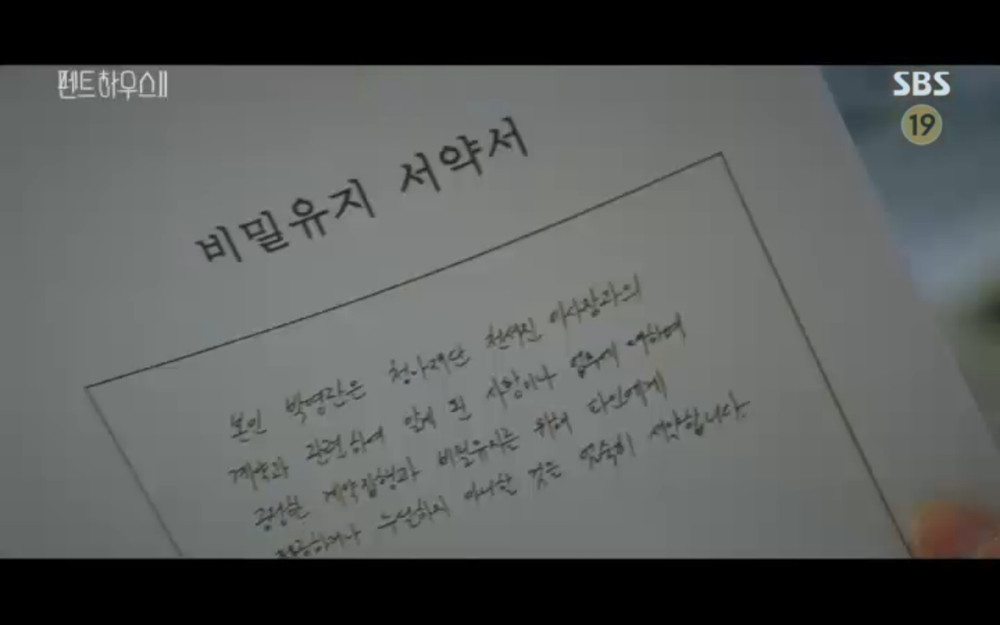 펜트하우스II
SBS
19
비밀유지 서약서
본인 박영란은 청아재단 천서진 이사장과의
계약과 관련하여 알게 된 사항이나 업무에 대하여
공정한 계약집행과 비밀유지를 위해 타인에게
제공하거나 누설하지 아니할 것은 엄숙히 서약합니다.